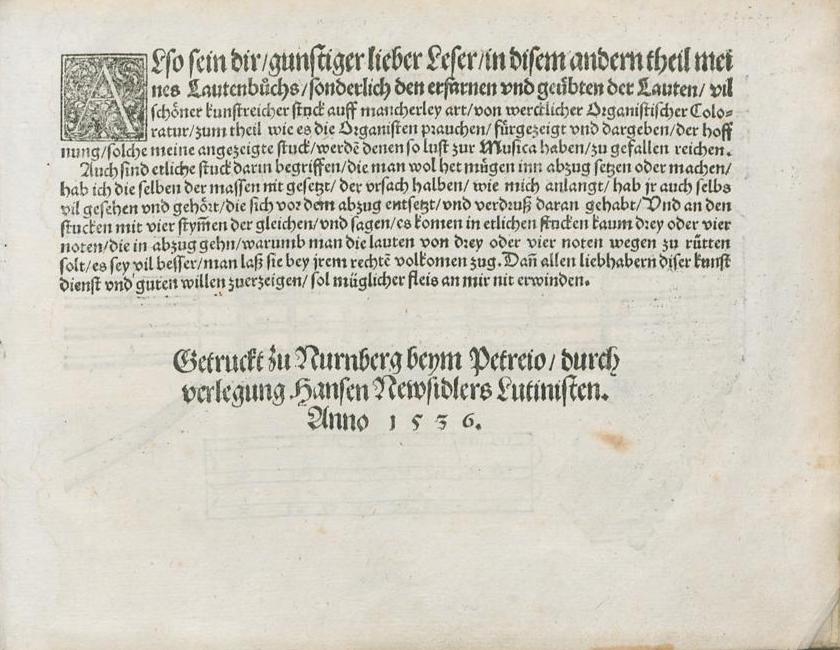 ALso sein dir/gunstiger lieber Leser/in disem andern theil mei
nes Lautenbůchs/sonderlich den erfarnen vnd geübten der Lauten/ vil
schöner kunstreicher stuck auff mancherley art/von wercklicher Organistischer Colo-
ratur/zum theil wie es die Organisten prauchen/ fürgezeigt vnd dargeben/der hoff
nung/solche meine angezeigte stuck/werdē denen so lust zur Musica haben/zu gefallen reichen.
Auch sind etliche stuck darin begriffen/die man wol het mügen inn abzug setzen oder machen/
hab ich die selben der massen nit gesetzt/ der vrsach halben/ wie mich anlangt/ hab jr auch selbs
vil gesehen vnd gehört/die sich vor dem abzug entsetzt/vnd verdruß daran gehabt/Vnd an den
stucken mit vier stym̃en der gleichen/vnd sagen/es komen in etlichen stucken kaum drey oder vier
noten/die in abzug gehn/warumb man die lauten von drey oder vier noten wegen zu rütten
solt/es sey vil besser/man laß sie bey jrem rechtē volkomen zug. Dañ allen liebhabern diser kunst
dienst vnd guten willen zuerzeigen/ sol müglicher fleis an mir nit erwinden.
Getruckt zu Nurnberg beym Petreio/ durch
verlegung Hansen Newsidlers Lutinisten.
Anno 1536.